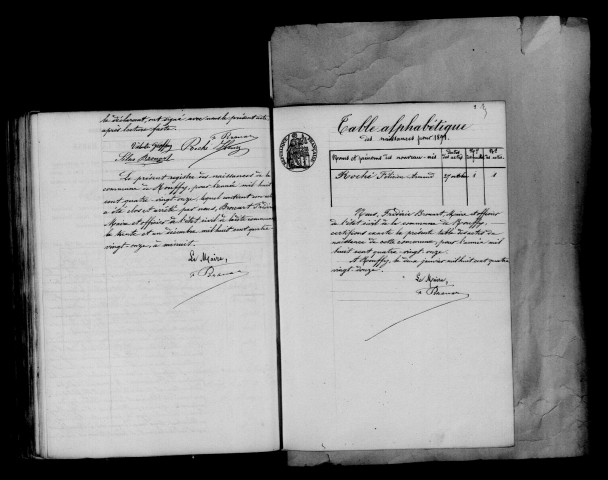 le déclarant, ont signé avec nous le présent acte
après lecture faite.
Roché
F Brouart
Le présent registre des naissances de la
commune de Rouffy, pour l'année mil huit
cent quatre vingt-onze, lequel contient un acte
a été clos et arrêté par nous, Brouart Frédéric
Maire et officier de l'état civil de ladite commune
le trente et un décembre mil huit cent quatre
vingt-onze, à minuit.
Le Maire,
F Brouart
Table alphabétique
des naissances pour 1891.
Noms et prénoms des nouveau-nés
Dates des actes
Roché
27 octobre 1 1
Nous, Frédéric Brouart, Maire et officier
de l'état civil de la commune de Rouffy,
certifions exacte la présente table des actes de
naissance de cette commune, pour l'année mil
huit cent quatre vingt-onze.
A Rouffy, le deux janvier mil huit cent quatre
vingt-douze.
Le Maire,
F Brouart